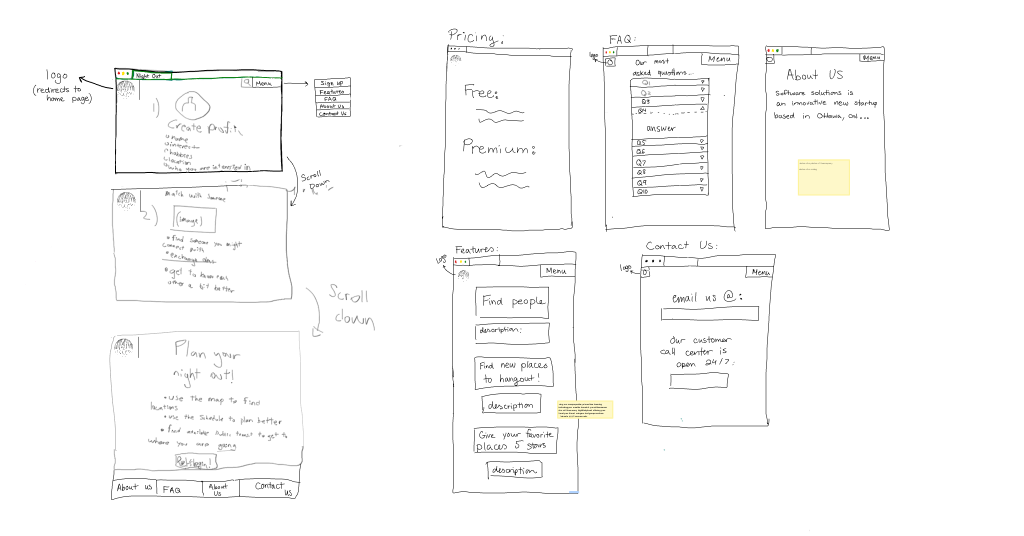 logo
(redirects to
home page)
Night Out
Menu
Sign up
Features
FAQ
About Us
Contact Us
1)
Create profile
name
interest
location
who you are interested in
Scroll
down
match with someone
2)
(image)
find someone you might
connect with
get to know
other a bit better
Scroll
down
Plan your
night out!
use the map to find
locations
use the Schedule to plan better
find available public transit to get to
where you are going
About us
FAQ
About
Us
Contact
us
Pricing:
Free:
Premium:
FAQ:
logo
Menu
Our most
asked questions...
Q1
Q2
Q3
Q4
answer
Q5
Q6
Q7
Q8
Q9
Q10
Menu
About US
Software solutions is
an innovative new startup
based in Ottawa, On...
Features:
logo
Menu
Find people
description:
Find new places
to hangout!
description
Give your favorite
places 5 stars
description
Contact Us:
logo
Menu
email us @:
Our customer
call center is
open 24/7: